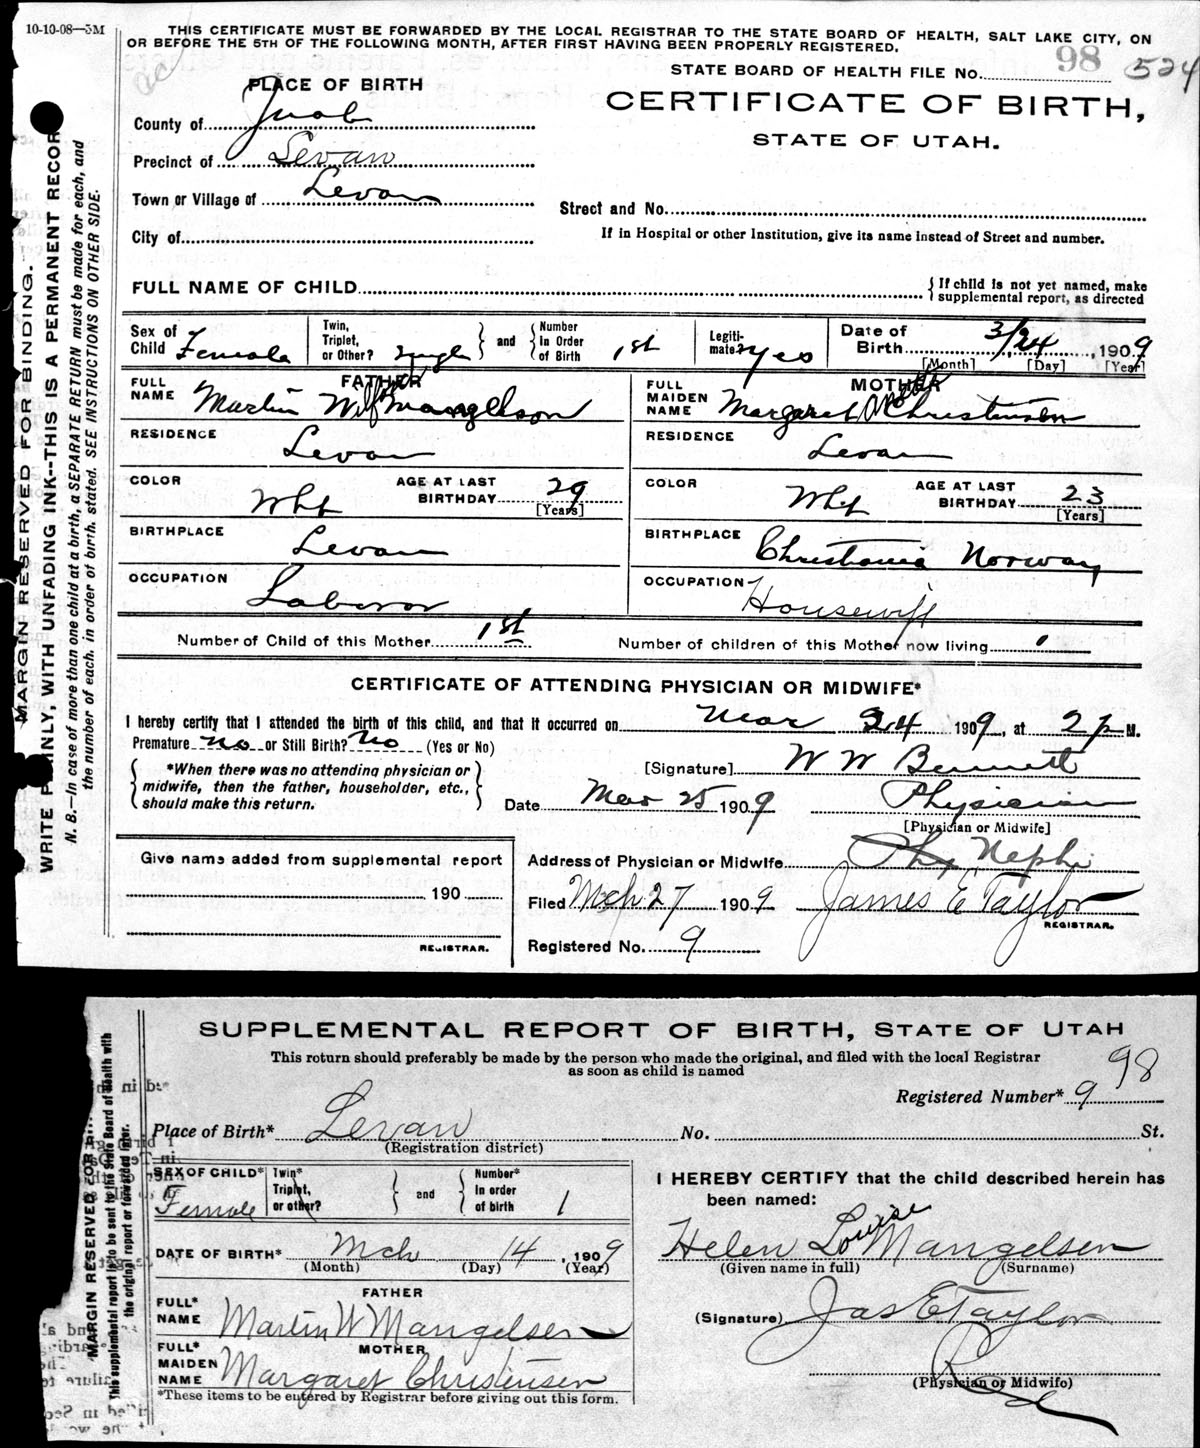 10-10-08—3M
THIS CERTIFICATE MUST BE FORWARDED BY THE LOCAL REGISTRAR TO THE STATE BOARD OF HEALTH, SALT LAKE CITY, ON
OR BEFORE THE 5TH OF THE FOLLOWING MONTH, AFTER FIRST HAVING BEEN PROPERLY REGISTERED.
STATE BOARD OF HEALTH FILE No. 98 524
PLACE OF BIRTH
CERTIFICATE OF BIRTH,
STATE OF UTAH.
County of Juab
Precinct of Levan
Town or Village of Levan
Street and No.
City of
If in Hospital or other Institution, give its name instead of Street and number.
FULL NAME OF CHILD
{If child is not yet named, make
supplemental report, as directed
Sex of Child Female
Twin, Triplet, or Other? Single } and { Number in Order of Birth 1st
Legiti-mate? Yes
Date of Birth 3/24, 1909
[Month] [Day] [Year]
FATHER
FULL NAME Martin Mangelson
MOTHER
FULL MAIDEN NAME Margaret Christensen
RESIDENCE Levan
RESIDENCE Levan
COLOR Wht
AGE AT LAST BIRTHDAY 29 [Years]
COLOR Wht
AGE AT LAST BIRTHDAY 23 [Years]
BIRTHPLACE Levan
BIRTHPLACE Christiania Norway
OCCUPATION Laborer
OCCUPATION Housewife
Number of Child of this Mother 1st
Number of children of this Mother now living 1
CERTIFICATE OF ATTENDING PHYSICIAN OR MIDWIFE*
I hereby certify that I attended the birth of this child, and that it occurred on Mar 24 1909, at 2 p M.
Premature No or Still Birth? No (Yes or No)
{ *When there was no attending physician or
midwife, then the father, householder, etc.,
should make this return. }
[Signature] W W Bennett
Date Mar 25 1909 Physician
[Physician or Midwife]
Give name added from supplemental report
190
REGISTRAR.
Address of Physician or Midwife Nephi
Filed Mch 27 1909 James E Taylor
REGISTRAR.
Registered No. 9
MARGIN RESERVED FOR BINDING.
WRITE PLAINLY, WITH UNFADING INK--THIS IS A PERMANENT RECORD
N. B.—In case of more than one child at a birth, a SEPARATE RETURN must be made for each, and
the number of each, in order of birth, stated. SEE INSTRUCTIONS ON OTHER SIDE.
SUPPLEMENTAL REPORT OF BIRTH, STATE OF UTAH
This return should preferably be made by the person who made the original, and filed with the local Registrar
as soon as child is named
98
Registered Number* 9
Place of Birth* Levan No. St.
(Registration district)
SEX OF CHILD* Female
Twin* Triplet, or other? } and { Number* In order of birth 1
I HEREBY CERTIFY that the child described herein has
been named:
Helen Louise Mangelsen
(Given name in full) (Surname)
DATE OF BIRTH* Mch 14, 1909
(Month) (Day) (Year)
FATHER
FULL* NAME Martin W Mangelsen
(Signature) Jas E Taylor
MOTHER
FULL* MAIDEN NAME Margaret Christensen
(Physician or Midwife)
*These items to be entered by Registrar before giving out this form.
MARGIN RESERVED FOR
This supplemental report to be sent to the State Board of Health with
the original report or forwarded later.